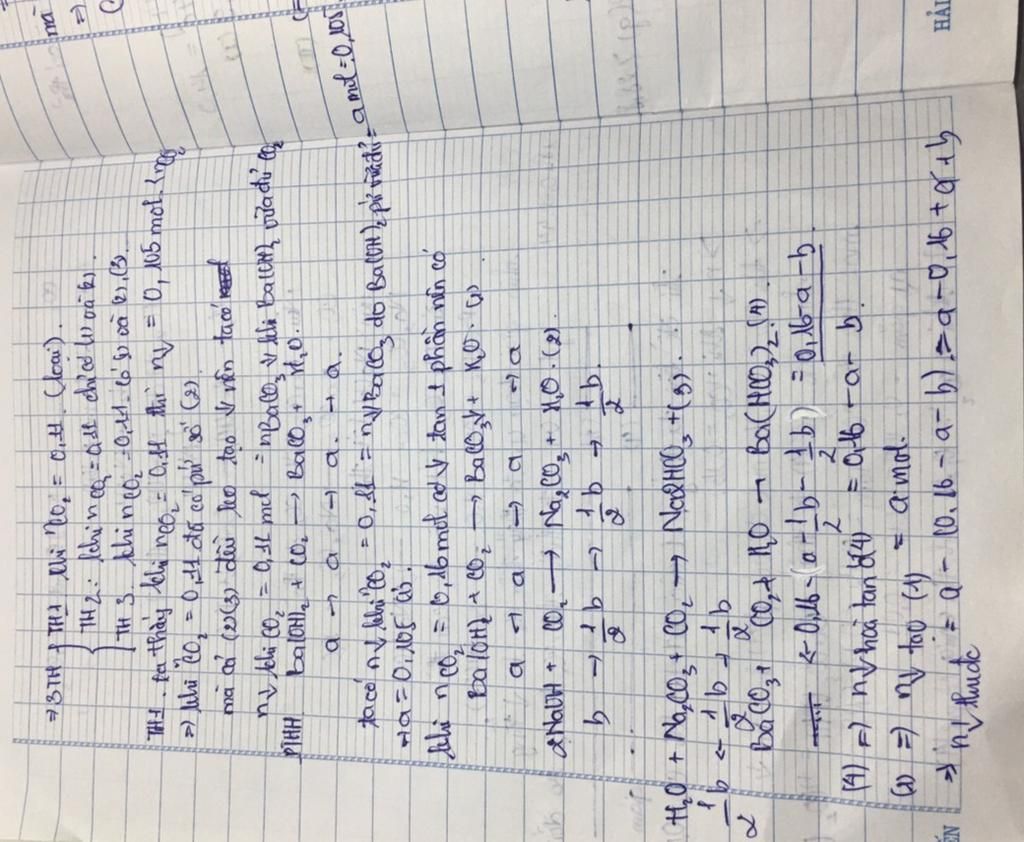 ⇒ 3TH { TH1 khi nCO₂ = 0,11. (loại).
TH2: khi nCO₂ = 0,11 chỉ có (1) và (2).
TH3. khi nCO₂ = 0,11. Có (1) và (2), (3).
TH1. ta thấy khi nCO₂ = 0,11 thì n↓ = 0,105 mol. < nCO₂
⇒ khi CO₂ = 0,11 đã có pứ số (2)
mà cả (2)(3) đều ko tạo ↓ nên ta có
n↓ khi CO₂ = 0,11 mol = nBaCO₃↓ khi Ba(OH)₂ vừa đủ CO₂
PTHH Ba(OH)₂ + CO₂ → BaCO₃ + H₂O.
a → a → a → a.
ta có n↓ khi CO₂ = 0,11 = n↓BaCO₃ do Ba(OH)₂ pứ vừa đủ = a mol = 0,105
⇒ a = 0,105
khi nCO₂ = 0,16 mol có ↓ tan 1 phần nên có
Ba(OH)₂ + CO₂ → BaCO₃↓ + H₂O. (1)
a → a → a → a
2NaOH + CO₂ → Na₂CO₃ + H₂O. (2)
b → 1/2 b → 1/2 b → 1/2 b
H₂O + Na₂CO₃ + CO₂ → Na2HCO₃ + (3).
1/2 b ← 1/2 b → 1/2 b
BaCO₃ + CO₂ + H₂O → Ba(HCO₃)₂. (4)
← 0,16 - (a - 1/2 b - 1/2 b) = 0,16 - a - b.
(4) ⇒ n↓ hoà tan ở (4) = 0,16 - a - b.
(1) ⇒ n↓ tạo (1) = a mol.
⇒ n↓ thuđc = a - (0,16 - a - b) = a - 0,16 + a + b